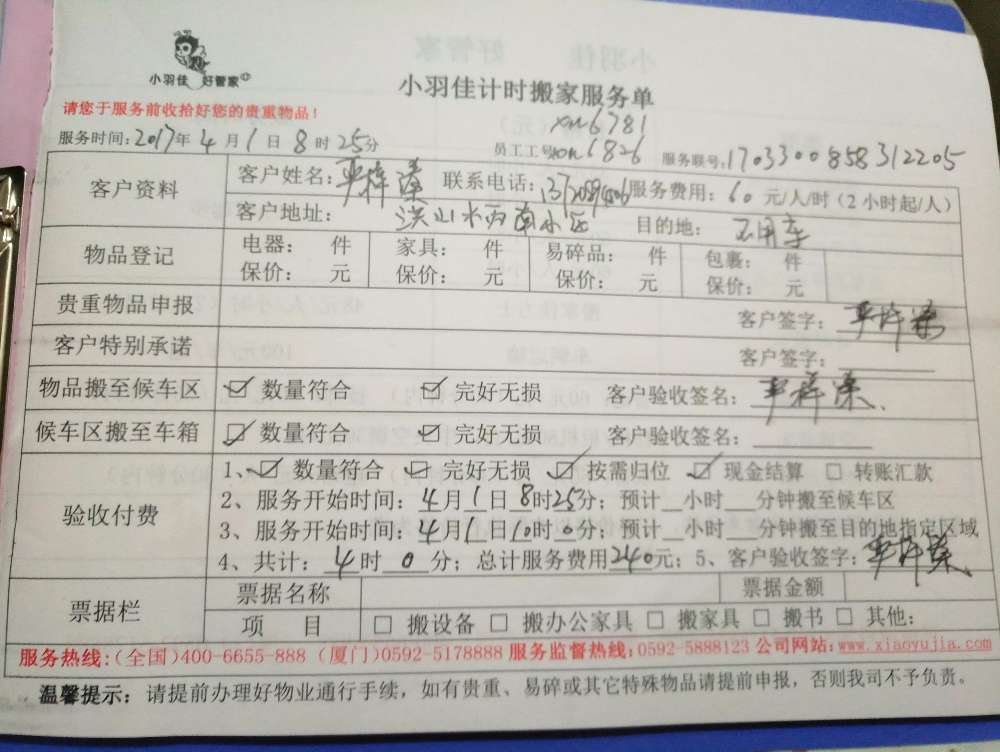 小羽佳 好管家
小羽佳计时搬家服务单
请您于服务前收拾好您的贵重物品！
xm6781
服务时间：2017年4月1日8时25分 员工工号xm6826 服务联号：1703300858312205
客户资料 客户姓名： 联系电话： 服务费用：60元/人/时（2小时起/人）
客户地址：洪山水西南小区 目的地：不用车
物品登记 电器： 件 家具： 件 易碎品： 件 包裹： 件
保价： 元 保价： 元 保价： 元 保价： 元
贵重物品申报 客户签字：
客户特别承诺 客户签字：
物品搬至候车区 ☑ 数量符合 ☑ 完好无损 客户验收签名：
候车区搬至车箱 ☑ 数量符合 ☑ 完好无损 客户验收签名：
验收付费 1、☑ 数量符合 ☑ 完好无损 ☑ 按需归位 ☑ 现金结算 □ 转账汇款
2、服务开始时间：4月1日8时25分；预计__小时___分钟搬至候车区
3、服务结束时间：4月1日10时0分；预计__小时___分钟搬至目的地指定区域
4、共计：4时0分；总计服务费用240元；5、客户验收签字：
票据栏 票据名称 票据金额
项 目 □ 搬设备 □ 搬办公家具 □ 搬家具 □ 搬书 □ 其他：
服务热线：(全国)400-6655-888 (厦门)0592-5178888 服务监督热线：0592-5888123 公司网站：www.xiaoyujia.com
温馨提示：请提前办理好物业通行手续，如有贵重、易碎或其它特殊物品请提前申报，否则我司不予负责。